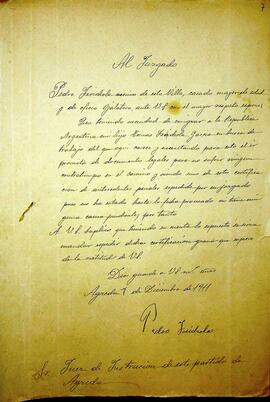 7
Al Juzgado
Pedro vecino de esta Villa, casado mayor de edad
y de oficio ante V.S. con el mayor respeto expone:
Que teniendo necesidad de emigrar a la Republica
Argentina mi hijo en busca de
trabajo del que aqui carece y necesitando para esto el ir
provisto de documentos legales para no sufrir ningun
contratiempo en el camino y siendo uno de estos certifica-
ción de antecedentes penales expedida por su juzgado
que no ha estado hasta la fecha procesado ni tiene nin-
guna causa pendiente, por tanto
A V.S. suplico que teniendo en cuenta lo expuesto se sirva
mandar expedir dicha certificacion gracia que espera
de la rectitud de V.S.
Dios guarde a V.S. m^s años
Agreda 7 de Diciembre de 1911
Pedro
Sr. Juez de Instrucion de este partido de
Agreda